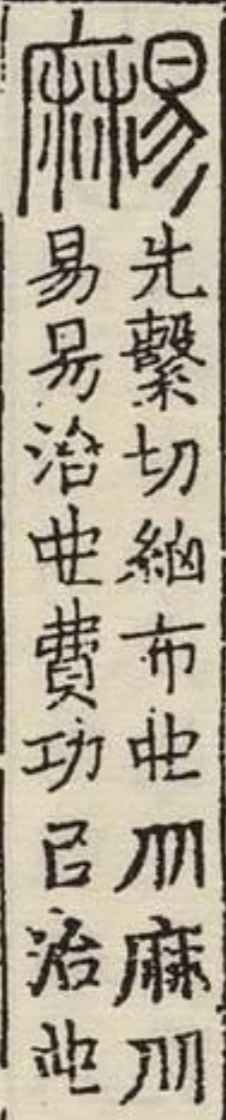 先繫切細布也从麻从
易易治也費功㠯治也